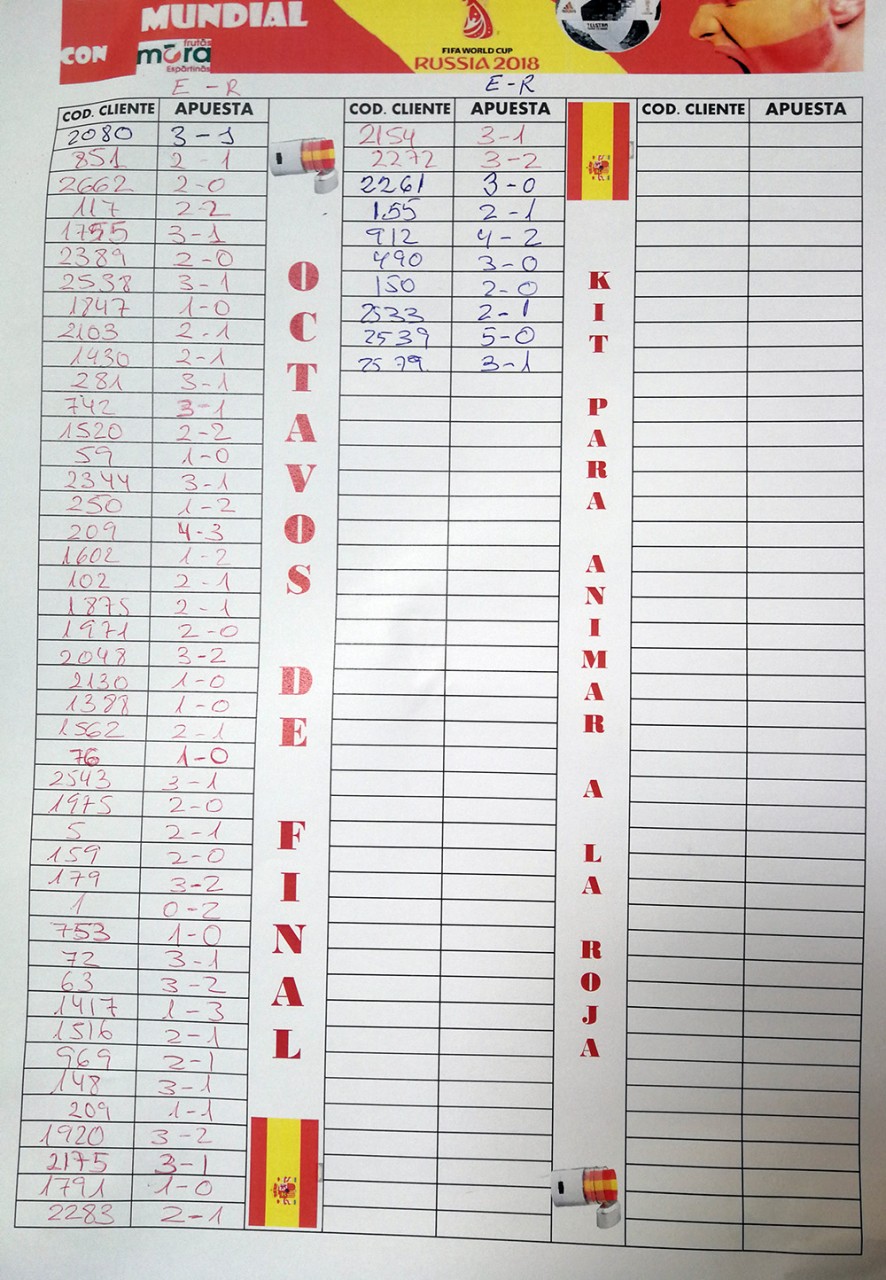 MUNDIAL
CON
frutas
mora
Espartinas
FIFA WORLD CUP
RUSSIA 2018
adidas
TELSTAR
E - R
E-R
COD. CLIENTE APUESTA COD. CLIENTE APUESTA COD. CLIENTE APUESTA
2080 3-1 2154 3-1
851 2-1 2272 3-2
2662 2-0 2261 3-0
117 2-2 155 2-1
1755 3-1 912 4-2
2389 2-0 490 3-0
2538 3-1 150 2-0
1847 1-0 2533 2-1
2103 2-1 2539 5-0
1430 2-1 2579 3-1
281 3-1
742 3-1
1520 2-2
59 1-0
2344 3-1
250 1-2
209 4-3
1602 1-2
102 2-1
1875 2-1
1971 2-0
2048 3-2
2130 1-0
1388 1-0
1562 2-1
76 1-0
2543 3-1
1975 2-0
5 2-1
159 2-0
179 3-2
1 0-2
753 1-0
72 3-1
63 3-2
1417 1-3
1516 2-1
969 2-1
148 3-1
209 1-1
1920 3-2
2175 3-1
1791 1-0
2283 2-1
OCTAVOS DE FINAL
KIT PARA ANIMAR A LA ROJA